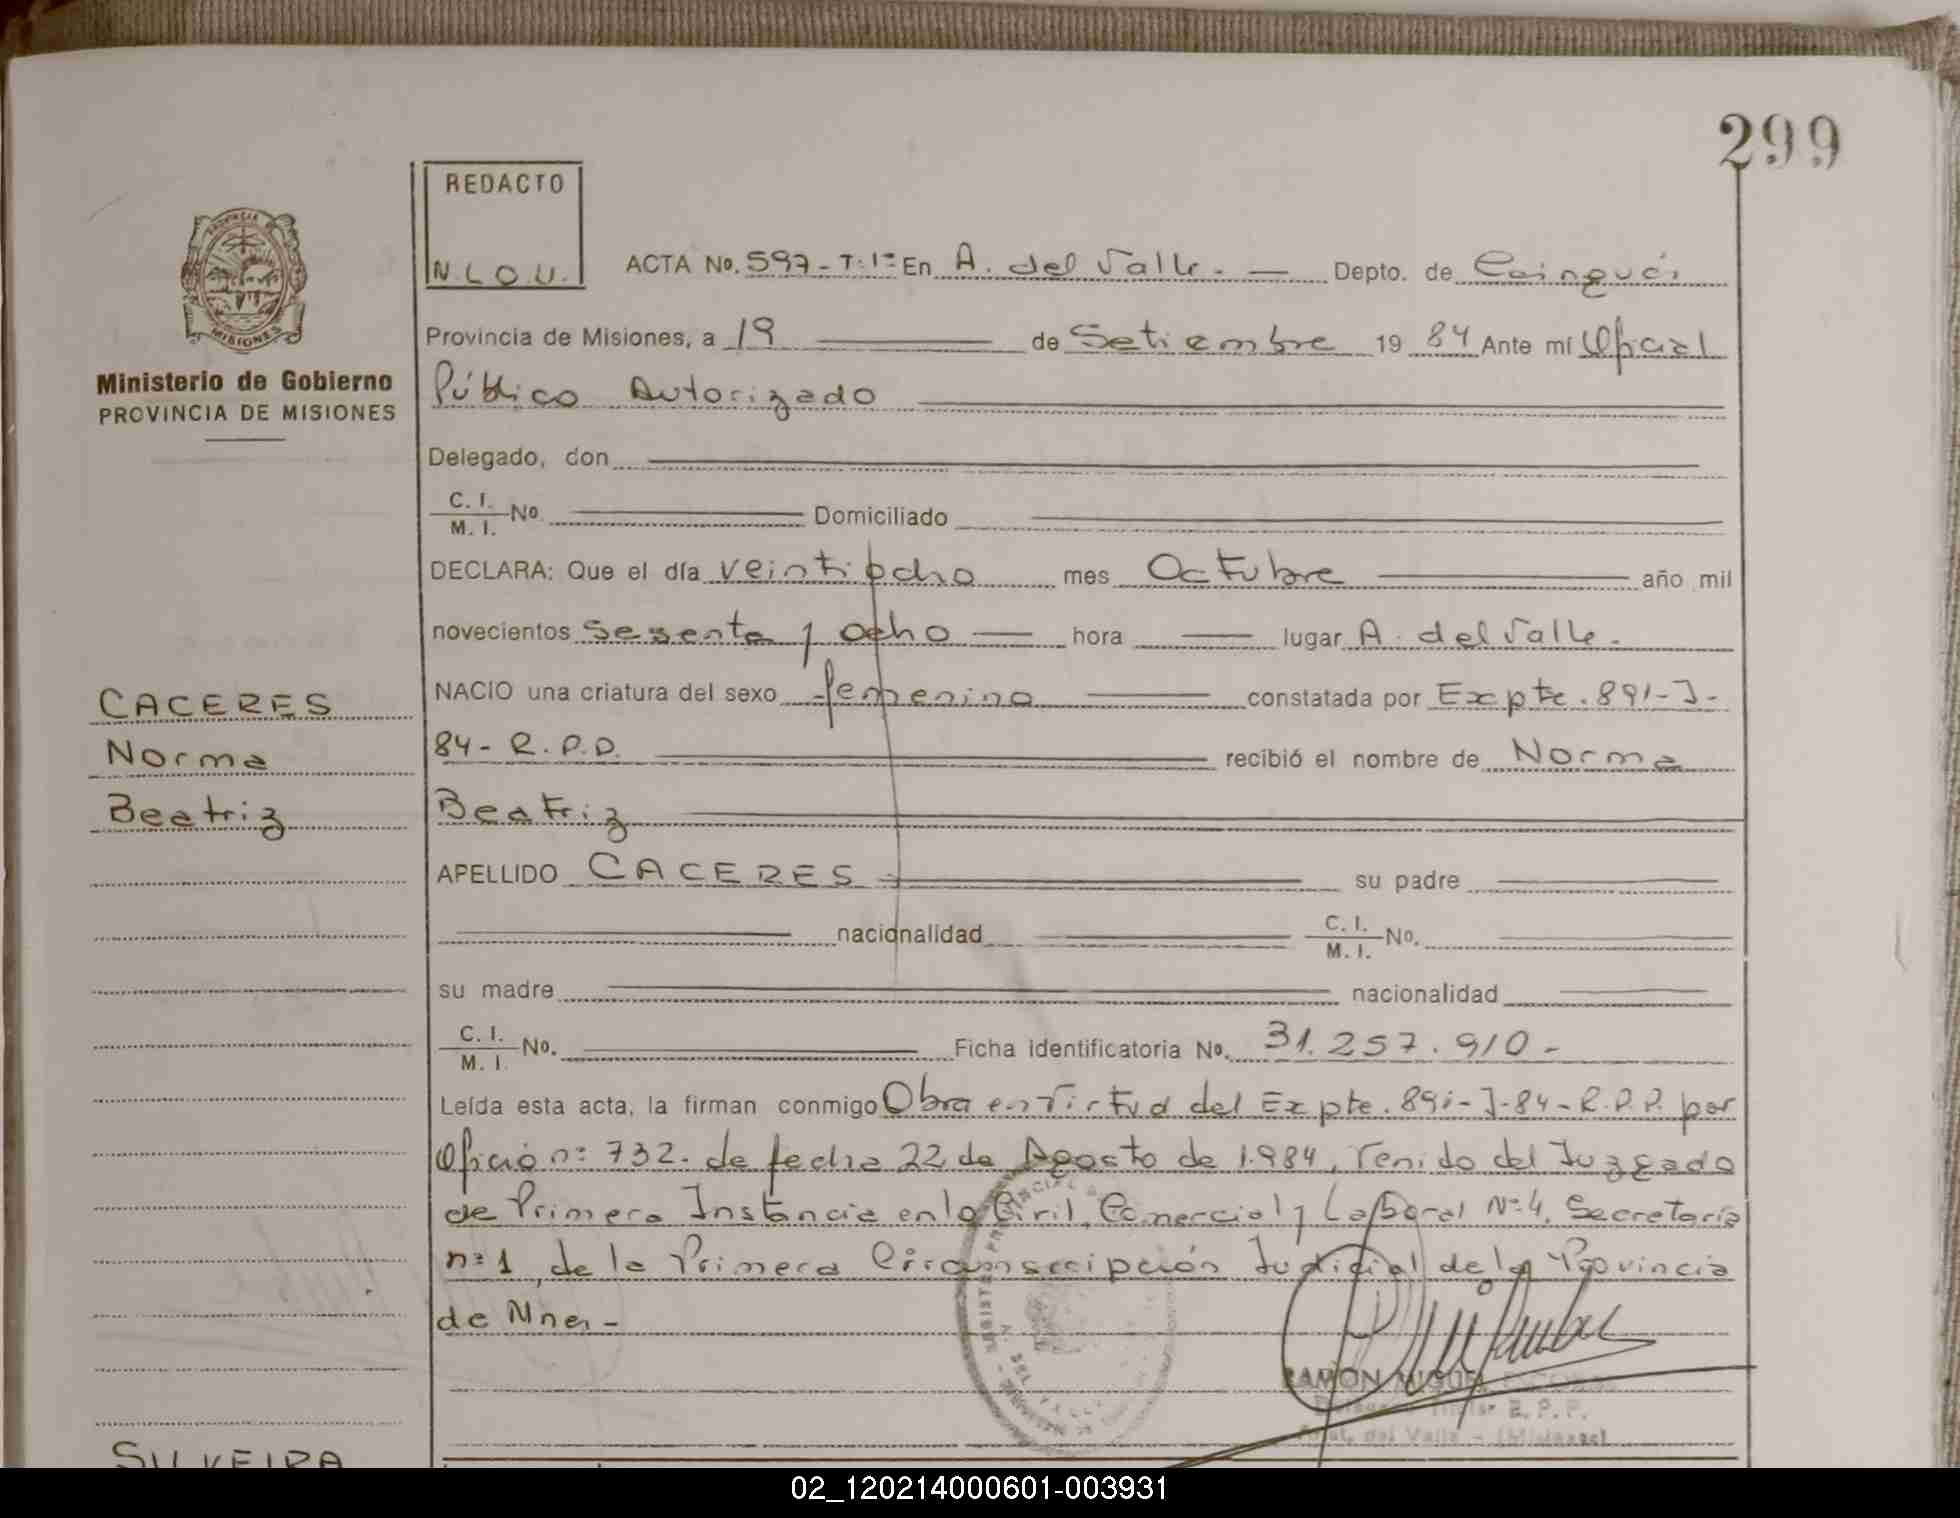 299
REDACTO
N.L.O.U.
PROVINCIA DE
MISIONES
Ministerio de Gobierno
PROVINCIA DE MISIONES
ACTA No. 597 - T: 1º En A. del Valle. — Depto. de Cainguás
Provincia de Misiones, a 19 — de Setiembre 19 84 Ante mí Oficial
Público Autorizado
Delegado, don
C. I. / M. I. No. Domiciliado
DECLARA: Que el día veintiocho mes Octubre año mil
novecientos Sesenta y ocho — hora — lugar A. del Valle.
CACERES
Norma
Beatriz
NACIO una criatura del sexo femenino — constatada por Expte. 891-J-
84 - R.P.P. recibió el nombre de Norma
Beatriz
APELLIDO CACERES su padre
nacionalidad C. I. / M. I. No.
su madre nacionalidad
C. I. / M. I. No. Ficha identificatoria No. 31.257.910-
Leída esta acta, la firman conmigo Obra en Virtud del Expte. 891-J-84-R.P.P. por
Oficio nº 732. de fecha 22 de Agosto de 1.984, Venido del Juzgado
de Primera Instancia en lo Civil, Comercial y Laboral Nº 4, Secretaría
nº 1, de la Primera Circunscripción Judicial de la Provincia
de Mnes -
RAMON MIGUEL
R. P. P.
del Valle - (Misiones)
SILVEIRA
02_120214000601-003931